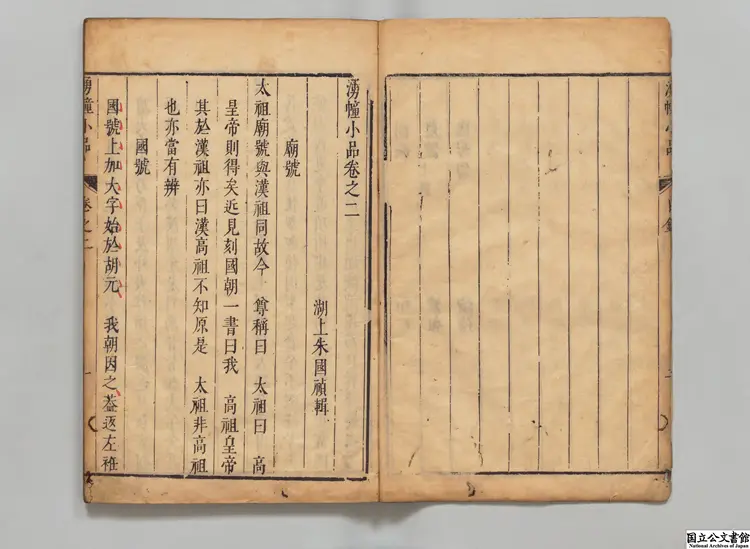 湧幢小品卷之二
湖上朱國禎輯
廟號
太祖廟號與漢祖同故今 尊稱曰 太祖曰 高
皇帝則得矣近見刻國朝一書曰我 高祖皇帝
其於漢祖亦曰漢高祖不知原是 太祖非高祖
也亦當有辨
國號
國號上加大字始於胡元 我朝因之葢返左衽
湧幢小品
卷之二
一
国立公文書館
National Archives of Japan